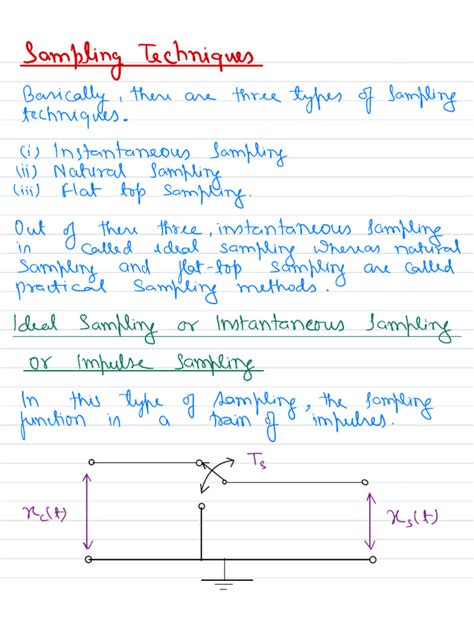 Sampling Techniques
Basically, there are three types of Sampling
techniques.
(i) Instantaneous Sampling
(ii) Natural Sampling
(iii) Flat top Sampling.
Out of these three, instantaneous Sampling
is called ideal sampling whereas natural
Sampling and flat-top Sampling are called
practical Sampling methods.
Ideal Sampling or Instantaneous Sampling
or Impulse Sampling
In this type of sampling, the sampling
function is a train of impulses.
Ts
xc(t)
xs(t)